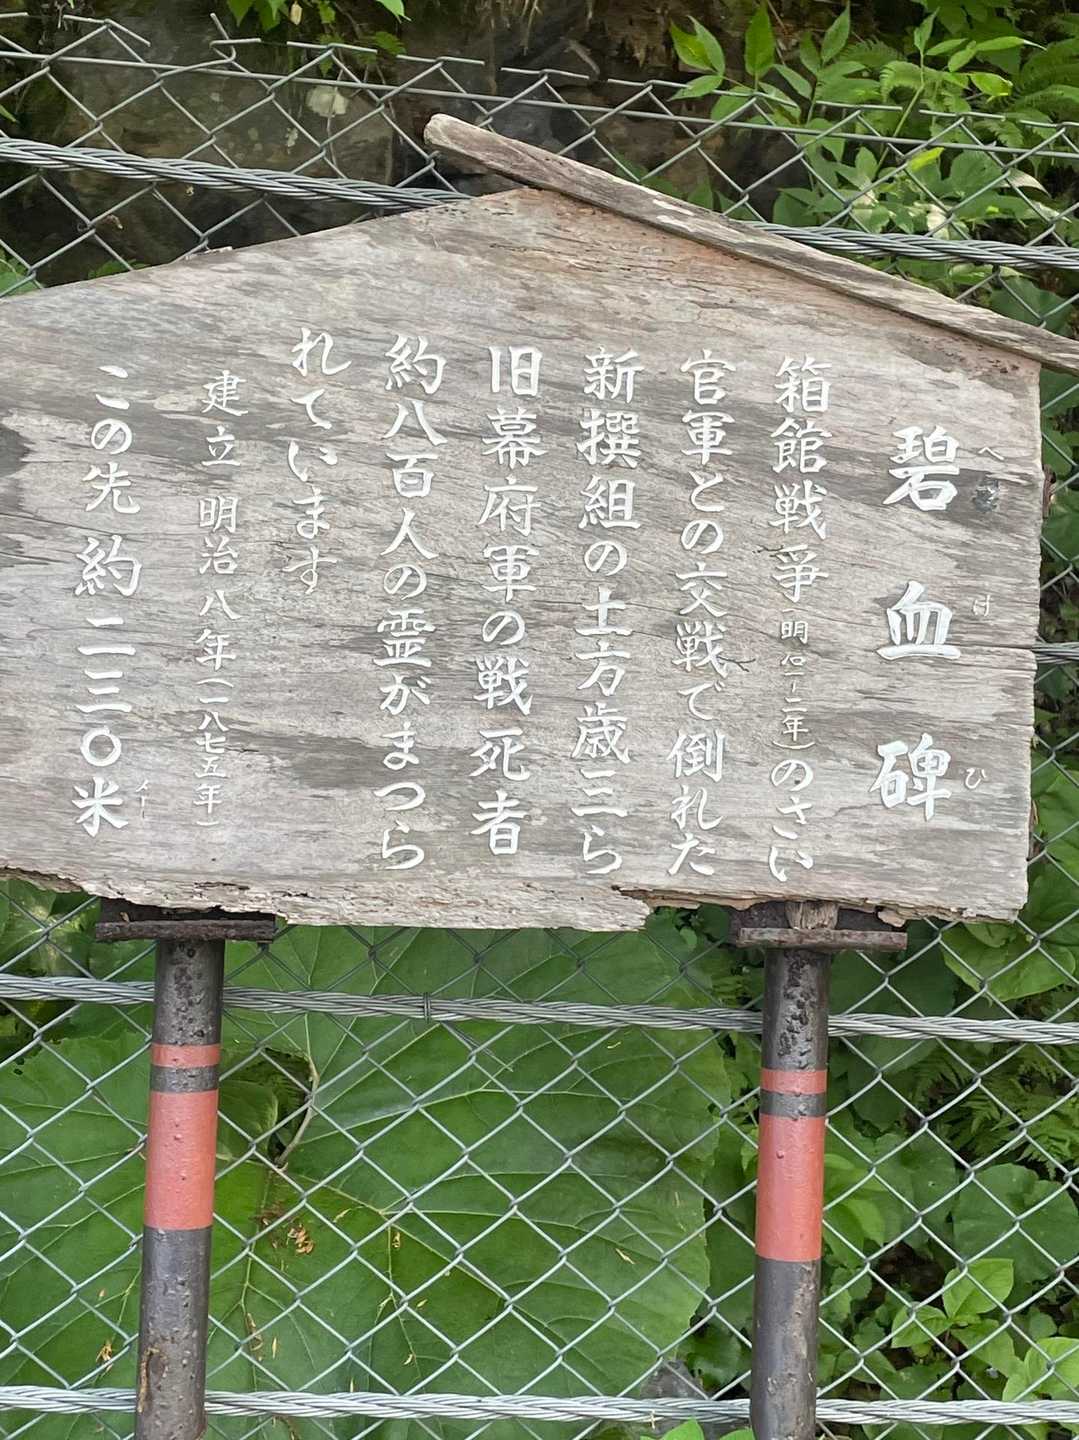 碧血碑
へ
け
ひ
箱館戦争(明治一〜二年)のさい
官軍との交戦で倒れた
新撰組の土方歳三ら
旧幕府軍の戦死者
約八百人の霊がまつら
れています
建立 明治八年(一八七五年)
この先 約二三〇米